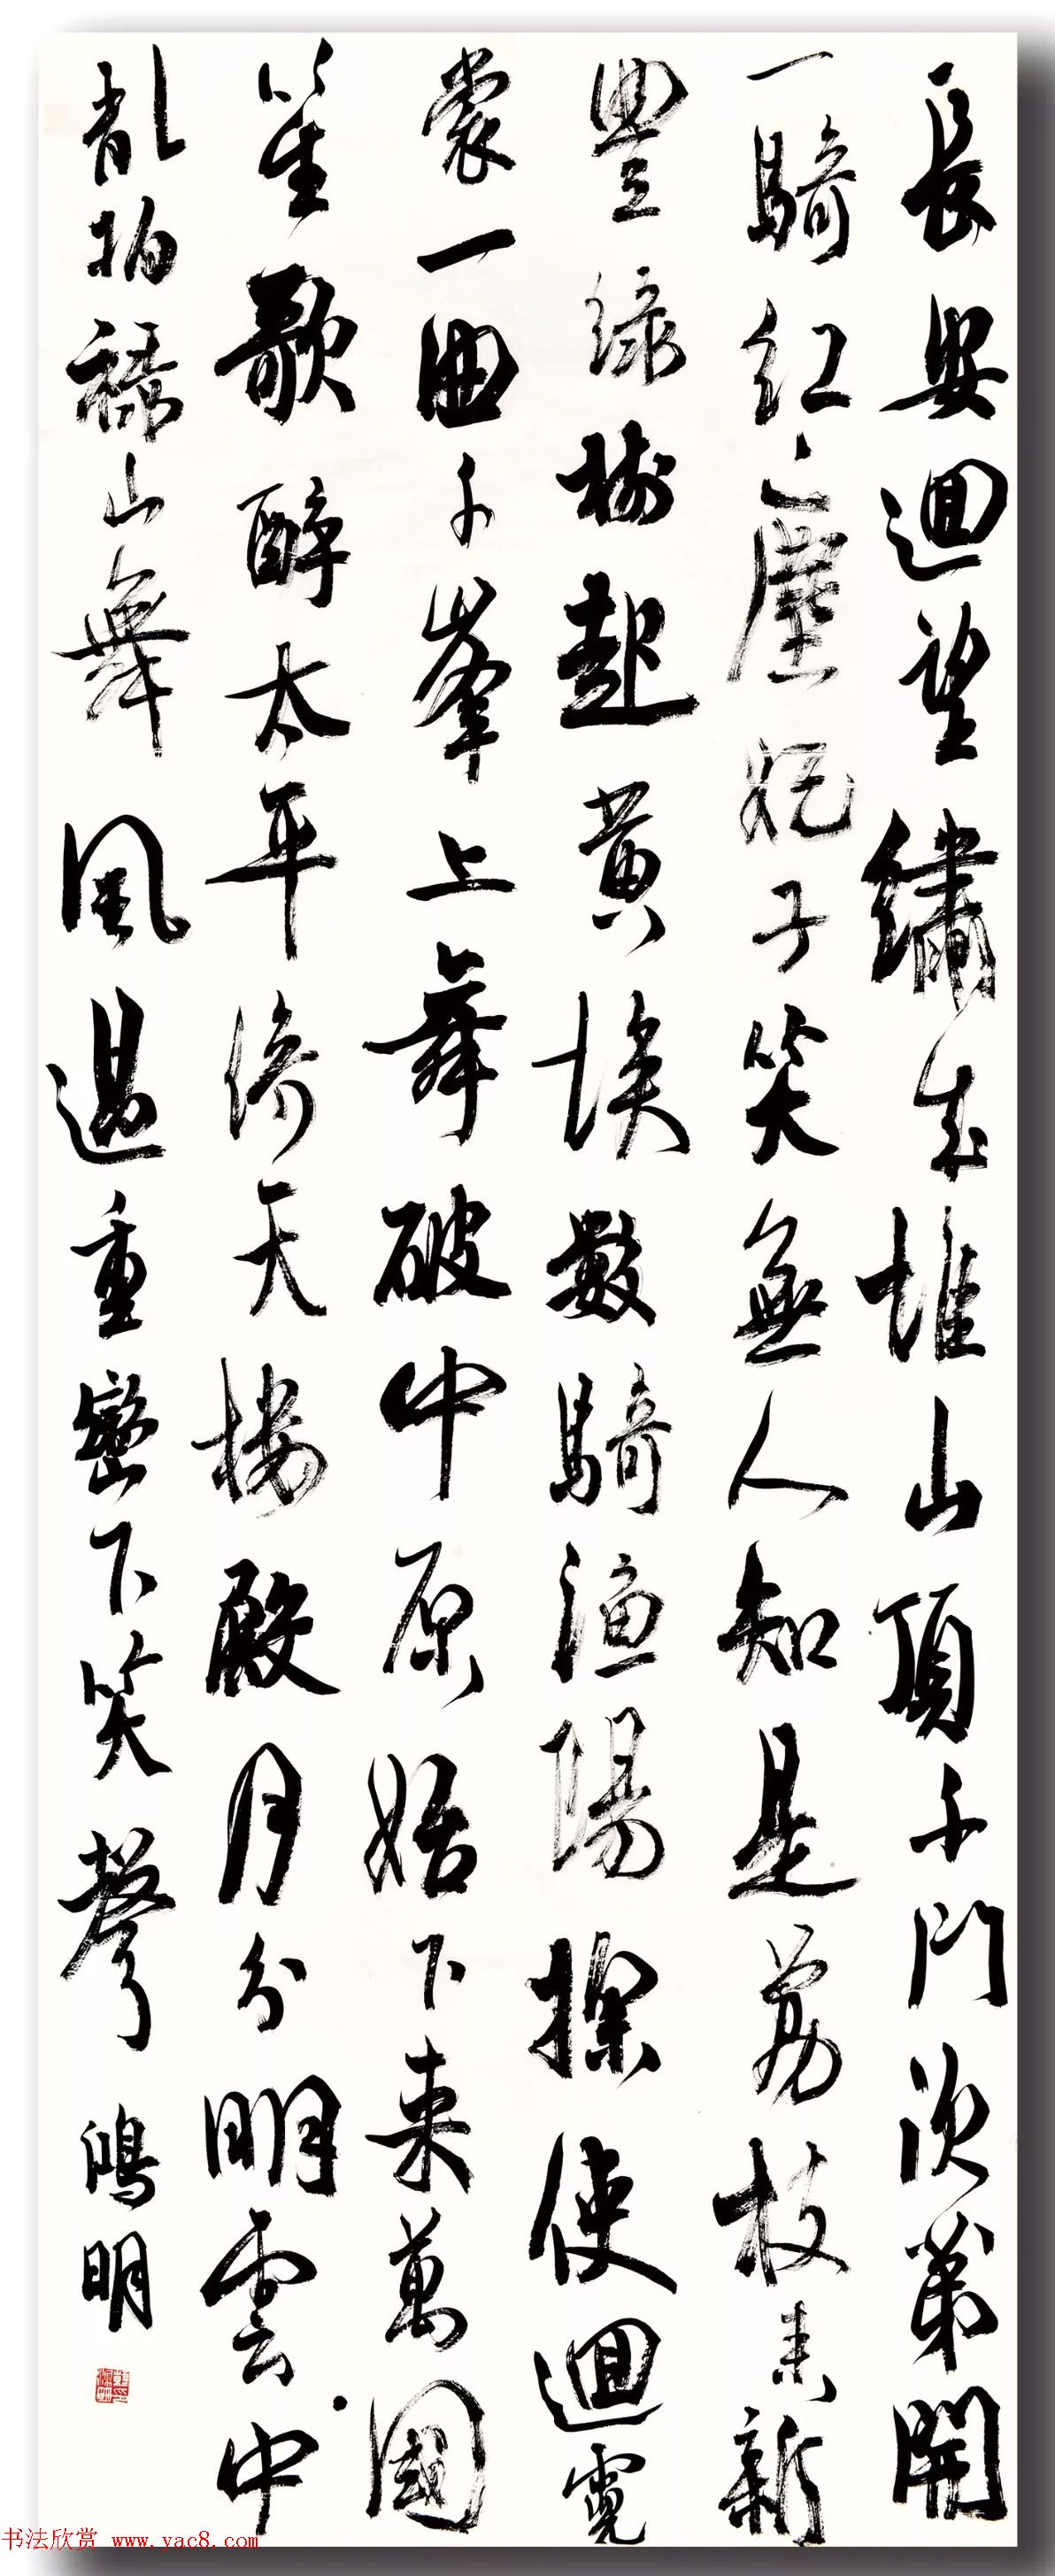 長安迴望繡成堆山頂千門次第開
一騎紅塵妃子笑無人知是荔枝來新
豐綠樹起黃埃數騎漁陽探使迴霓
裳一曲千峯上舞破中原始下來萬國
笙歌醉太平倚天樓殿月分明雲中
亂拍祿山舞風過重巒下笑聲 鴻明
书法欣赏 www.yac8.com